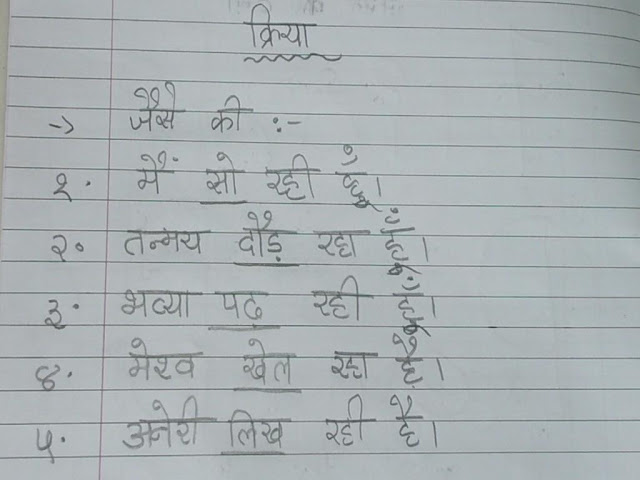 क्रिया
-> जैसे की :-
१. मैं सो रही हूँ।
२. तन्मय दौड़ रहा है।
३. भव्या पढ रही है।
४. मेश्व खेल रहा है।
५. अनेरी लिख रही है।